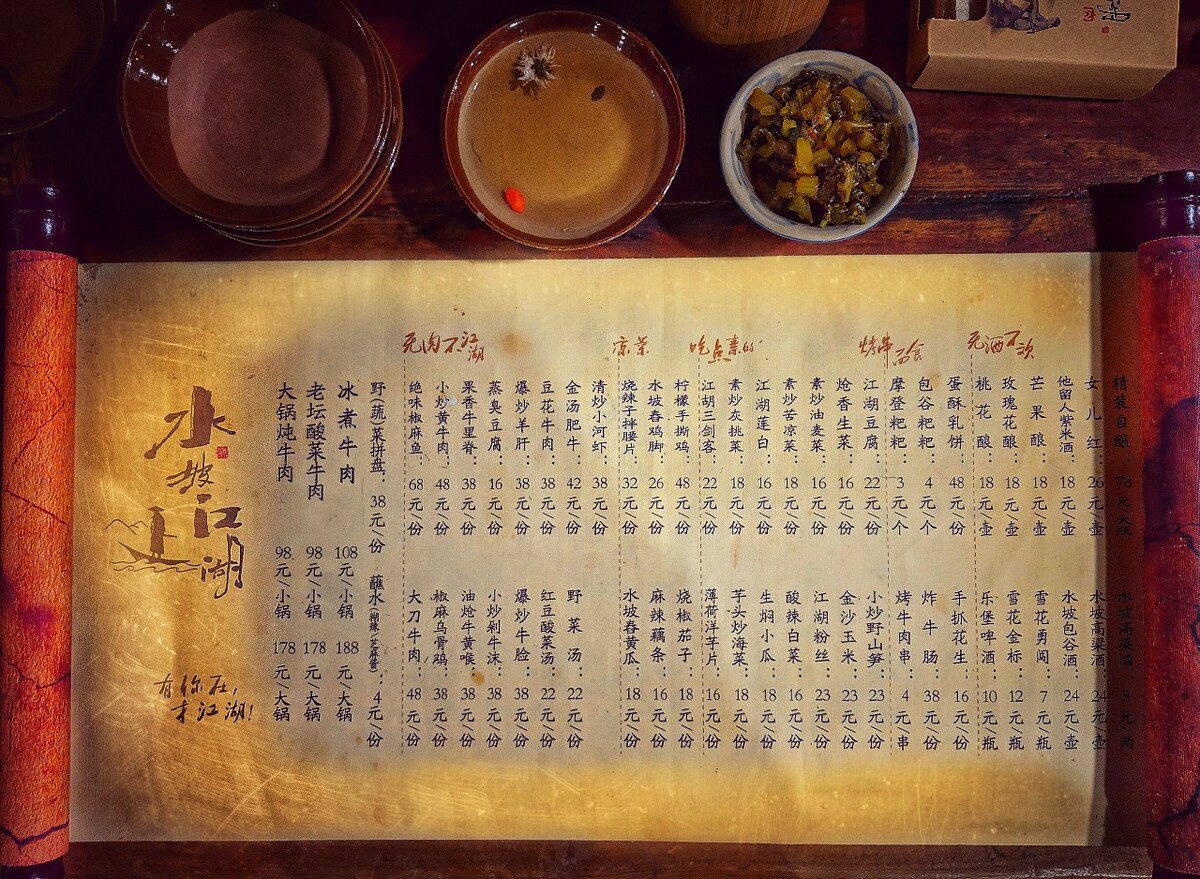 水坡江湖
有你在,
才江湖!
大锅炖牛肉 98元/小锅 178元/大锅
老坛酸菜牛肉 98元/小锅 178元/大锅
冰煮牛肉 108元/小锅 188元/大锅
野(蔬)菜拼盘:38元/份 蘸水(糊辣/芝麻酱):4元/份
无肉不江湖
绝味椒麻鱼:68元/份
小炒黄牛肉:48元/份
果香牛里脊:38元/份
蒸臭豆腐:16元/份
爆炒羊肝:38元/份
豆花牛肉:38元/份
金汤肥牛:42元/份
清炒小河虾:38元/份
大刀牛肉:48元/份
椒麻乌骨鸡:38元/份
油焓牛黄喉:38元/份
小炒剁牛沫:38元/份
爆炒牛脸:38元/份
红豆酸菜汤:22元/份
野菜汤:22元/份
凉菜
烧辣子拌腰片:32元/份
水坡舂鸡脚:26元/份
柠檬手撕鸡:48元/份
水坡舂黄瓜:18元/份
麻辣藕条:16元/份
烧椒茄子:18元/份
吃点素的
江湖三剑客:22元/份
素炒灰挑菜:18元/份
江湖莲白:16元/份
素炒苦凉菜:18元/份
素炒油麦菜:16元/份
炝香生菜:16元/份
江湖豆腐:22元/份
薄荷洋芋片:16元/份
芋头炒海菜:18元/份
生焖小瓜:18元/份
酸辣白菜:16元/份
江湖粉丝:23元/份
金沙玉米:23元/份
小炒野山笋:23元/份
烤串 面食
摩登粑粑:3元/个
包谷粑粑:4元/个
蛋酥乳饼:48元/份
烤牛肉串:4元/串
炸牛肠:38元/份
手扒花生:16元/份
无酒不欢
桃花酿:18元/壶
玫瑰花酿:18元/壶
芒果酿:18元/壶
他留人紫米酒:18元/壶
女儿红:26元/壶
精装自酿:78元/大瓶
乐堡啤酒:10元/瓶
雪花金标:12元/瓶
雪花勇闯:7元/瓶
水坡包谷酒:24元/壶
水坡高粱酒:24元/壶
水坡高粱酒:8元/两